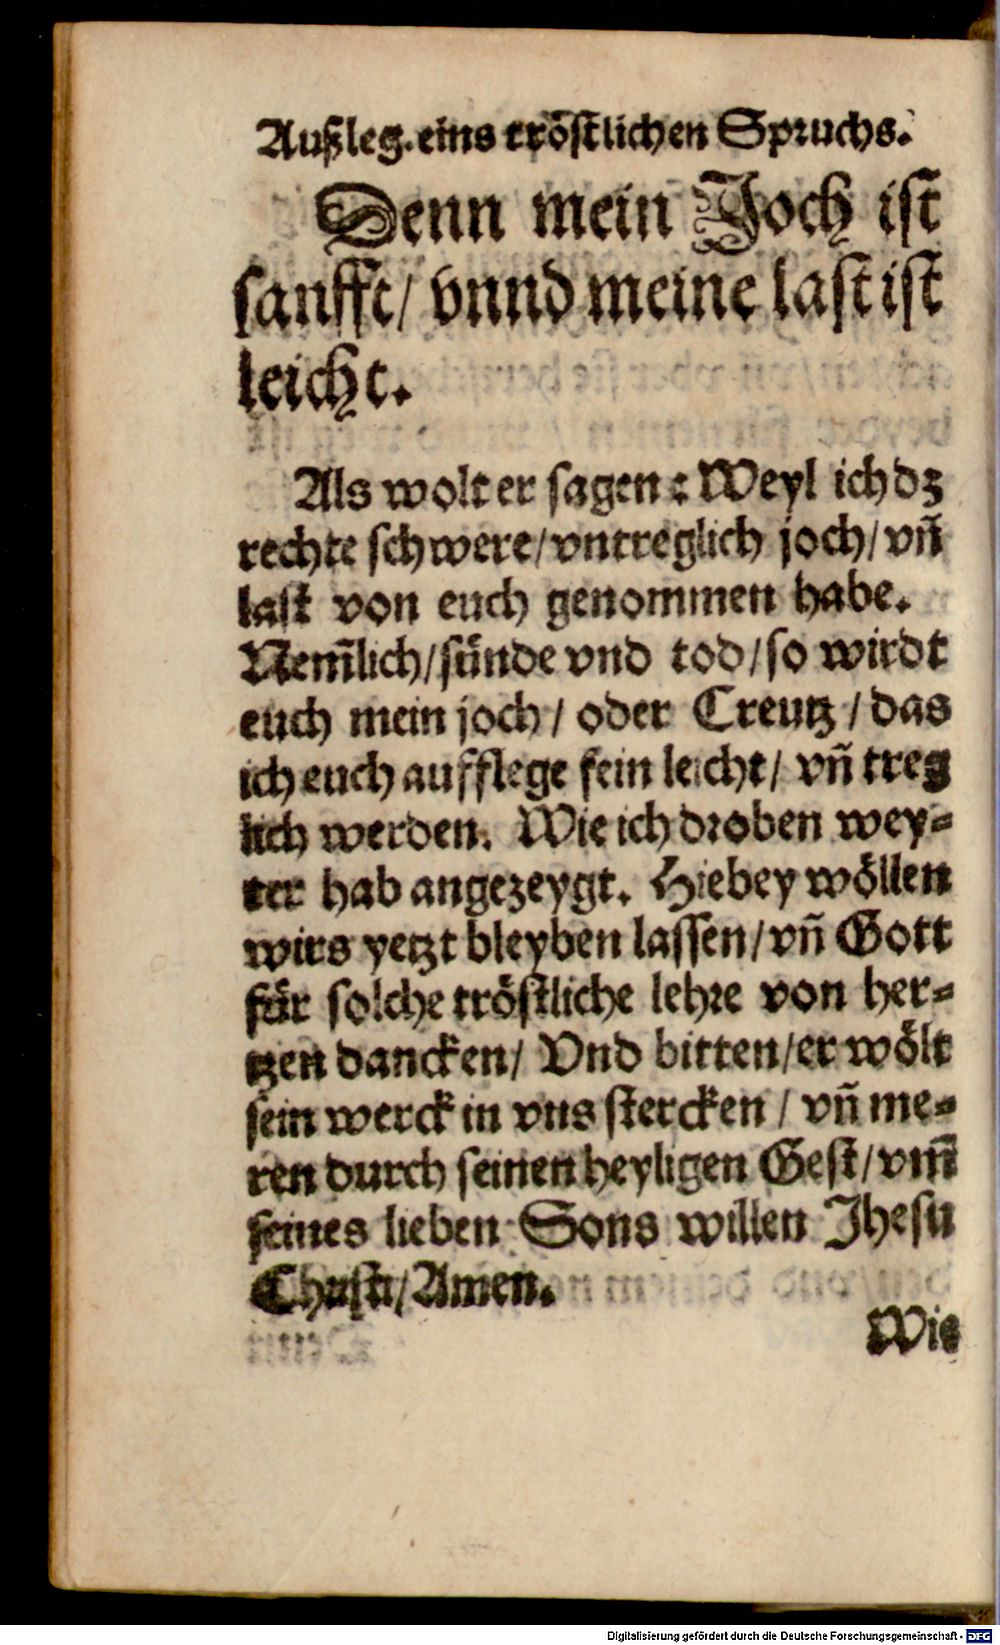 Außleg. eins tröstlichen Spruchs.
Denn mein Joch ist
sanfft/ vnnd meine last ist
leicht.
Als wolt er sagen: Weyl ich dz
rechte schwere/ vntreglich joch/ vñ
last von euch genommen habe.
Nem̃lich/ sünde vnd tod/ so wirdt
euch mein joch/ oder Creutz/ das
ich euch aufflege fein leicht/ vñ treg
lich werden. Wie ich droben wey-
ter hab angezeygt. Hiebey wöllen
wirs yetzt bleyben lassen/ vñ Gott
för solche tröstliche lehre von her-
tzen dancken/ Vnd bitten/ er wölt
sein werck in vns stercken/ vñ me-
ren durch seinen heyligen Gest/ vm̃
seines lieben Sons willen Jhesu
Christi/ Amen.
Wie
Digitalisierung gefördert durch die Deutsche Forschungsgemeinschaft - DFG